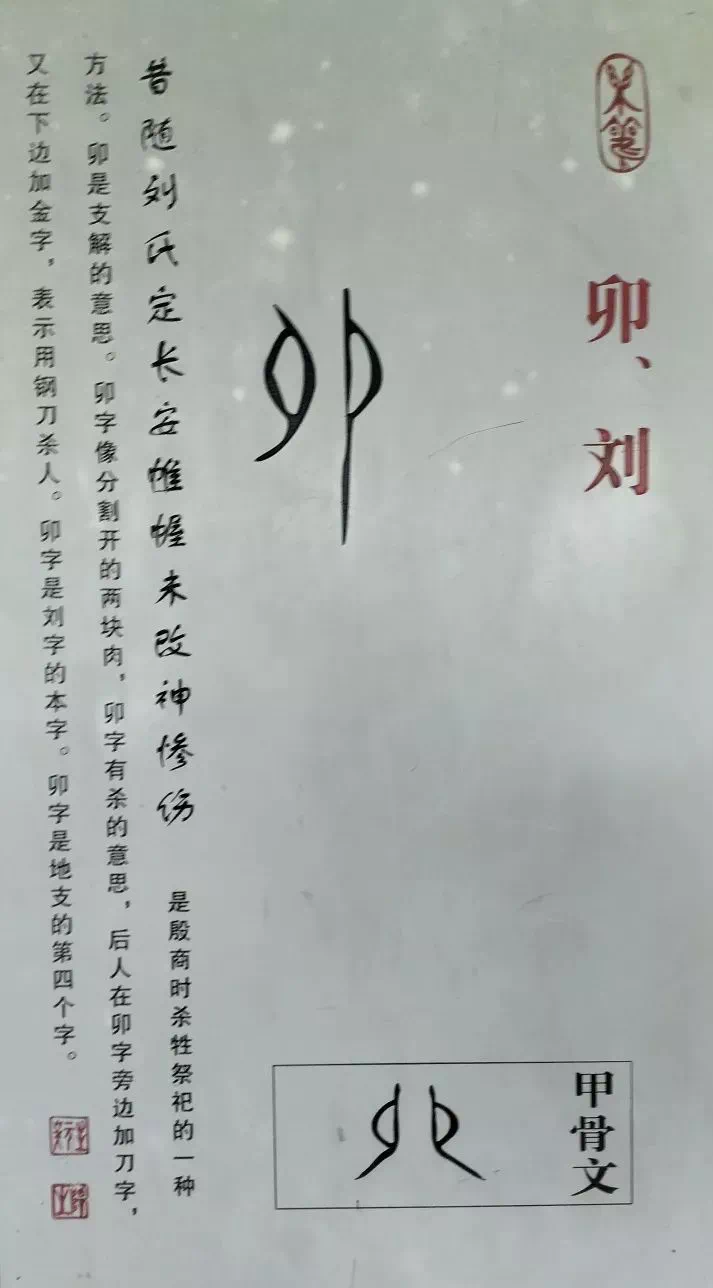 卯、刘
甲骨文
昔随刘氏定长安帷幄未改神惨伤
是殷商时杀牲祭祀的一种
方法。卯是支解的意思。卯字像分割开的两块肉，卯字有杀的意思，后人在卯字旁边加刀字，
又在下边加金字，表示用钢刀杀人。卯字是刘字的本字。卯字是地支的第四个字。